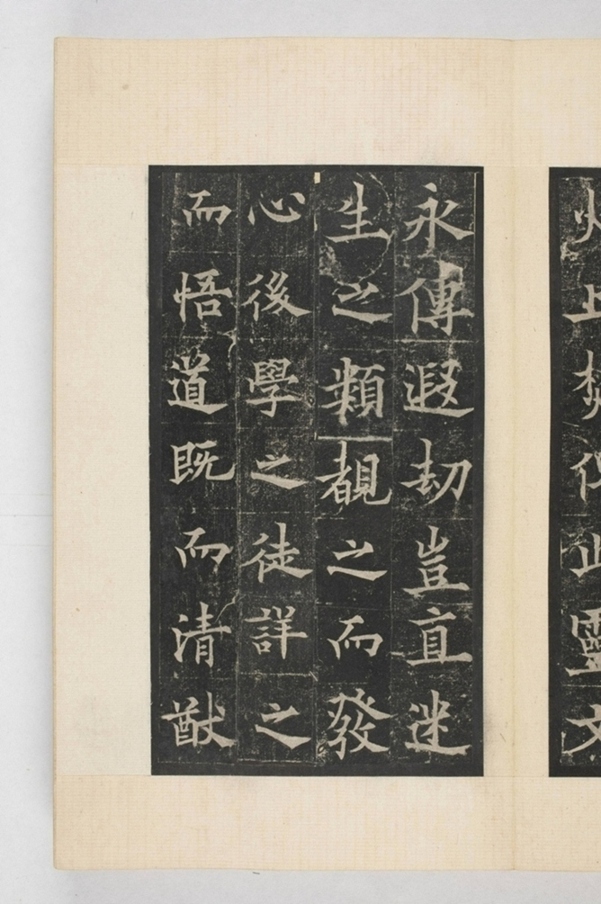 靈文
永傳遐劫豈直迷
生之類覩之而發
心後學之徒詳之
而悟道既而清猷